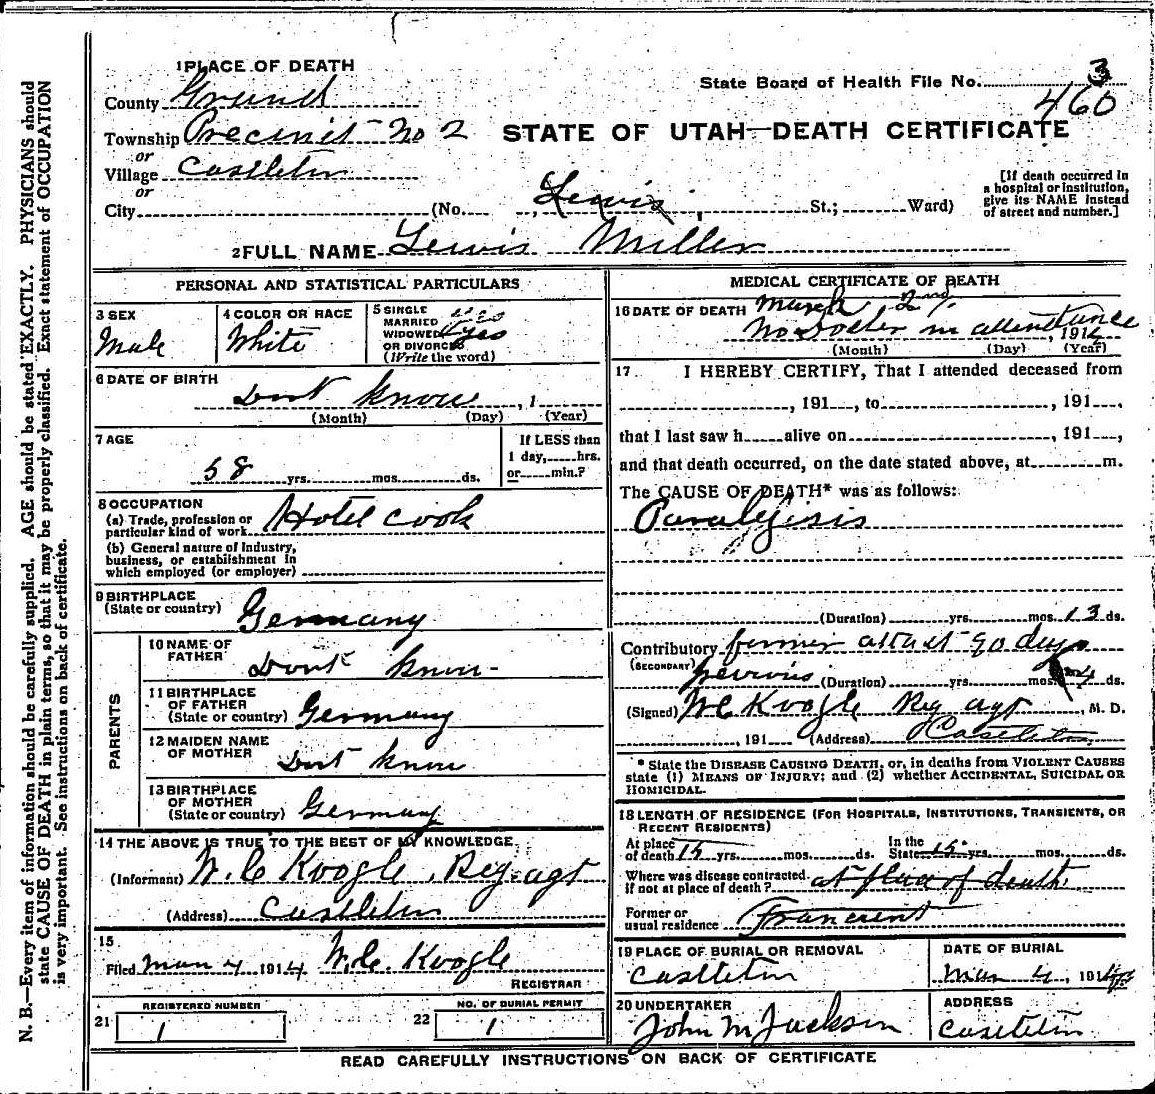 1 PLACE OF DEATH
State Board of Health File No. 3
460
County Grand
Township Precinct No 2
or
STATE OF UTAH—DEATH CERTIFICATE
Village Castleton
or
City (No. , Lewis , St.; Ward)
[If death occurred in
a hospital or institution,
give its NAME instead
of street and number.]
2 FULL NAME Lewis Miller
PERSONAL AND STATISTICAL PARTICULARS
3 SEX
Male
4 COLOR OR RACE
White
5 SINGLE
MARRIED
WIDOWED yes
OR DIVORCED
(Write the word)
6 DATE OF BIRTH
Dont know , 1
(Month) (Day) (Year)
7 AGE
58 yrs. mos. ds.
If LESS than
1 day, hrs.
or min.?
8 OCCUPATION
(a) Trade, profession or
particular kind of work Hotel cook
(b) General nature of Industry,
business, or establishment in
which employed (or employer)
9 BIRTHPLACE
(State or country) Germany
PARENTS
10 NAME OF
FATHER Dont know
11 BIRTHPLACE
OF FATHER
(State or country) Germany
12 MAIDEN NAME
OF MOTHER Dont know
13 BIRTHPLACE
OF MOTHER
(State or country) Germany
14 THE ABOVE IS TRUE TO THE BEST OF MY KNOWLEDGE
(Informant) W. C. Koogle, Reg. agt
(Address) Castleton
15
Filed Mar 4, 1914 W. C. Koogle
REGISTRAR
REGISTERED NUMBER
21 1
NO. OF BURIAL PERMIT
22 1
MEDICAL CERTIFICATE OF DEATH
16 DATE OF DEATH March 2nd
No Docter in attendance , 1914
(Month) (Day) (Year)
17. I HEREBY CERTIFY, That I attended deceased from
, 191 , to , 191 ,
that I last saw h alive on , 191 ,
and that death occurred, on the date stated above, at m.
The CAUSE OF DEATH* was as follows:
Paralysis
(Duration) yrs. mos. 13 ds.
Contributory former attact 90 days
(SECONDARY) previus (Duration) yrs. mos. ds.
(Signed) W C Koogle Reg agt , M. D.
, 191 (Address) Castleton
* State the DISEASE CAUSING DEATH, or, in deaths from VIOLENT CAUSES
state (1) MEANS OF INJURY; and (2) whether ACCIDENTAL, SUICIDAL OR
HOMICIDAL.
18 LENGTH OF RESIDENCE (FOR HOSPITALS, INSTITUTIONS, TRANSIENTS, OR
RECENT RESIDENTS)
At place
of death 15 yrs. mos. ds. In the
State 15 yrs. mos. ds.
Where was disease contracted.
if not at place of death? at place of death
Former or
usual residence
19 PLACE OF BURIAL OR REMOVAL
Castleton
DATE OF BURIAL
Mar 4, 1914
20 UNDERTAKER
John M Jackson
ADDRESS
Castleton
READ CAREFULLY INSTRUCTIONS ON BACK OF CERTIFICATE
N. B.—Every item of information should be carefully supplied. AGE should be stated EXACTLY. PHYSICIANS should
state CAUSE OF DEATH in plain terms, so that it may be properly classified. Exact statement of OCCUPATION
is very important. See instructions on back of certificate.